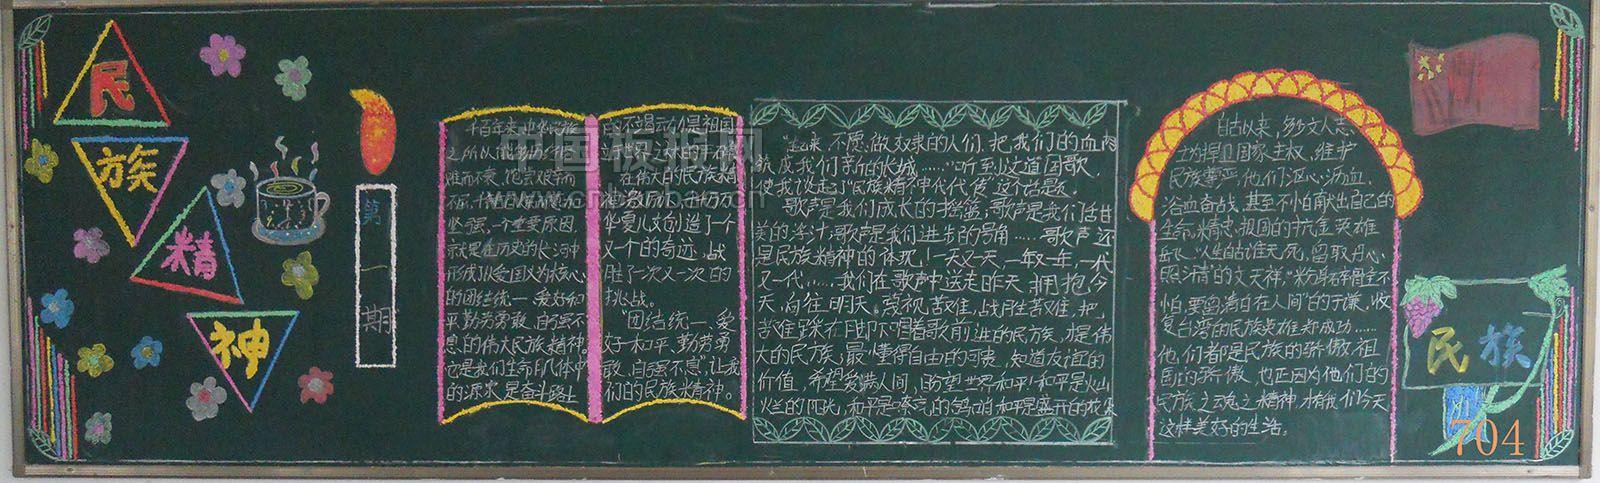 民
族
精
神
第
一
期
千百年来，中华民族
之所以能
难而不衰，饱尝艰辛而
不
坚强，一个重要原因，
就是在历史的长河中
形成了以爱国主义为核心
的团结统一、爱好和
平、勤劳勇敢、自强不
息的伟大民族精神。
它是我们生命肌体中
的源泉，是奋斗路上
的不竭动力是祖国
在伟大的民族精
华夏儿女创造了一个
又一个的奇迹，战
胜了一次又一次的
挑战。
“团结统一、爱
好和平、勤劳勇
敢、自强不息”让我
们的民族精神。
“起来，不愿做奴隶的人们，把我们的血肉
筑成我们新的长城……”听到这道国歌，
使我谈起了“民族精神代代传”这个话题。
歌声是我们成长的摇篮；歌声是我们甘
美的 歌声是我们进步的号角……歌声还
是民族精神的体现！一天又一天，一年又一年，一代
又一代……我们在歌声中送走昨天，拥抱今
天，向往明天。蔑视苦难，战胜苦难，把
苦难踩在脚下唱着歌前进的民族，才是伟
大的民族，最懂得自由的可贵，知道友谊的
价值，希望爱满人间，盼望世界和平！和平是火山
烂的阳光，和平是 的鸽哨和平是盛开的花朵
自古以来，多少文人志
士为捍卫国家主权，维护
民族尊严，他们呕心沥血、
浴血奋战，甚至不惜献出自己的
生命。精忠报国的抗金英雄
岳飞、“人生自古谁无死，留取丹心
照汗青”的文天祥，“粉身碎骨全不
怕，要留清白在人间”的于谦，收
复台湾的民族英雄郑成功……
他们都是民族的骄傲，祖
国的骄傲，也正因为他们的
民族之魂之精神，才有我们今天
这样美好的生活。
民族
704
中国板报网
www.cnbanbao.cn